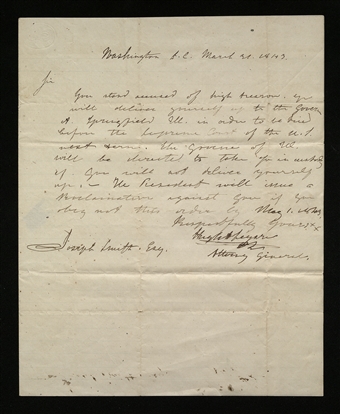 Washington D.C. March 20. 1843
Sir
You stand accused of high treason. You
will deliver yourself up to the Governor
at Springfield Ill. in order to be tried
before the Supreme Court of the U.S.
next term. The Governor of Ill.
will be directed to take you in custody
if you will not deliver yourself
up. — The President will issue a
Proclamation against you if you
obey not this order by May 1. 1843
Respectfully Yours
Hugh S Legare
Attorney General.
Joseph Smith. Esq.